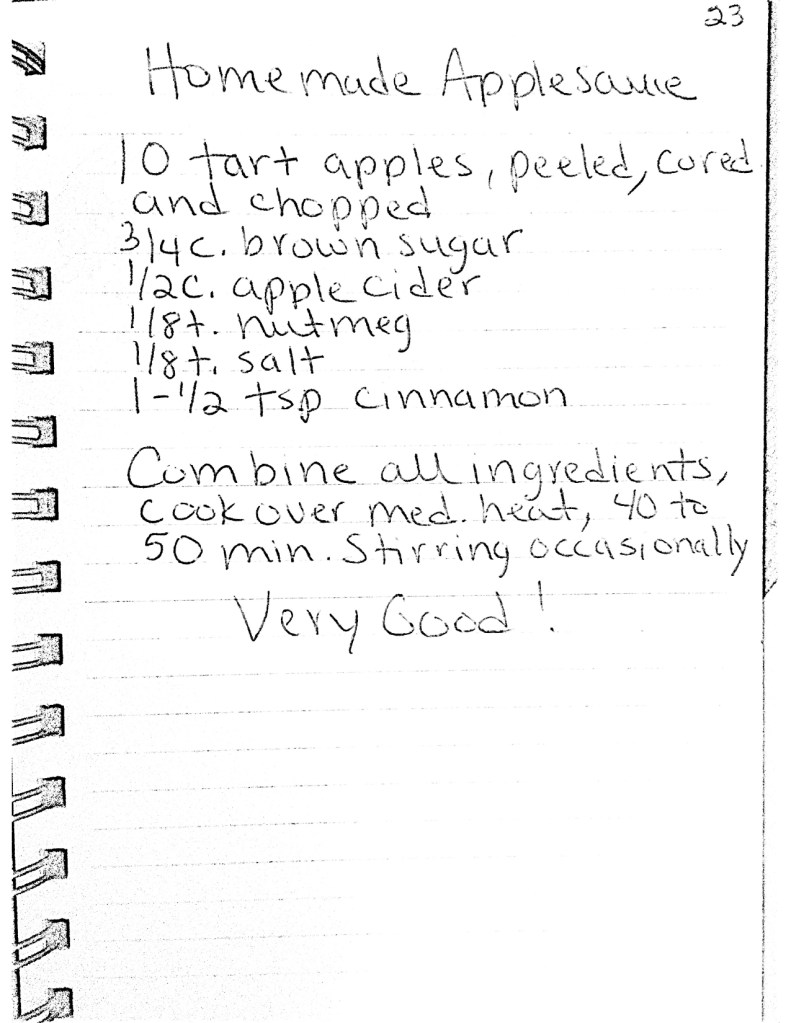 23
Homemade Applesauce
10 tart apples, peeled, cored
and chopped
3/4 c. brown sugar
1/2 c. apple cider
1/8 t. nutmeg
1/8 t. salt
1-1/2 tsp cinnamon
Combine all ingredients,
cook over med. heat, 40 to
50 min. Stirring occasionally
Very Good!